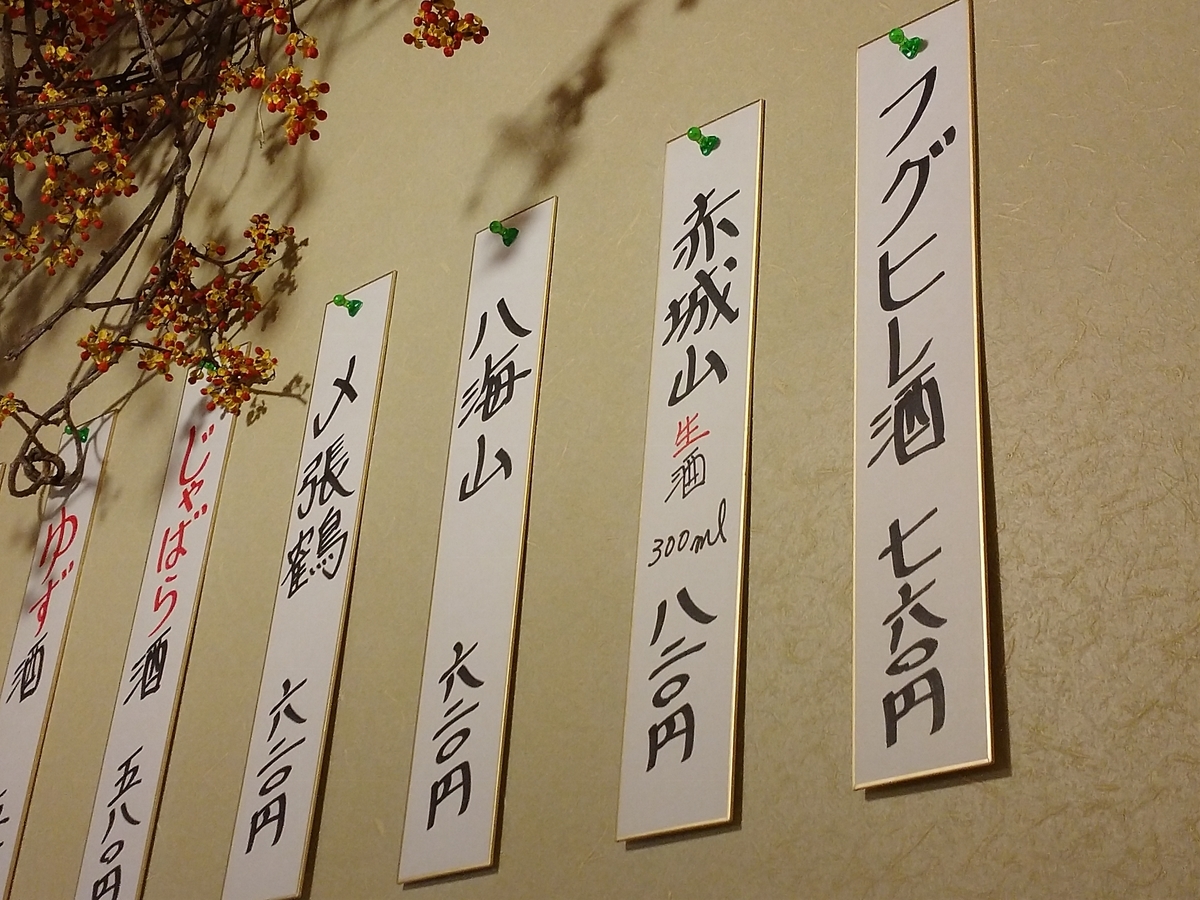 フグヒレ酒 七六〇円
赤城山 生酒 300ml 八二〇円
八海山 六二〇円
〆張鶴 六二〇円
じゃばら酒 五八〇円
ゆず酒